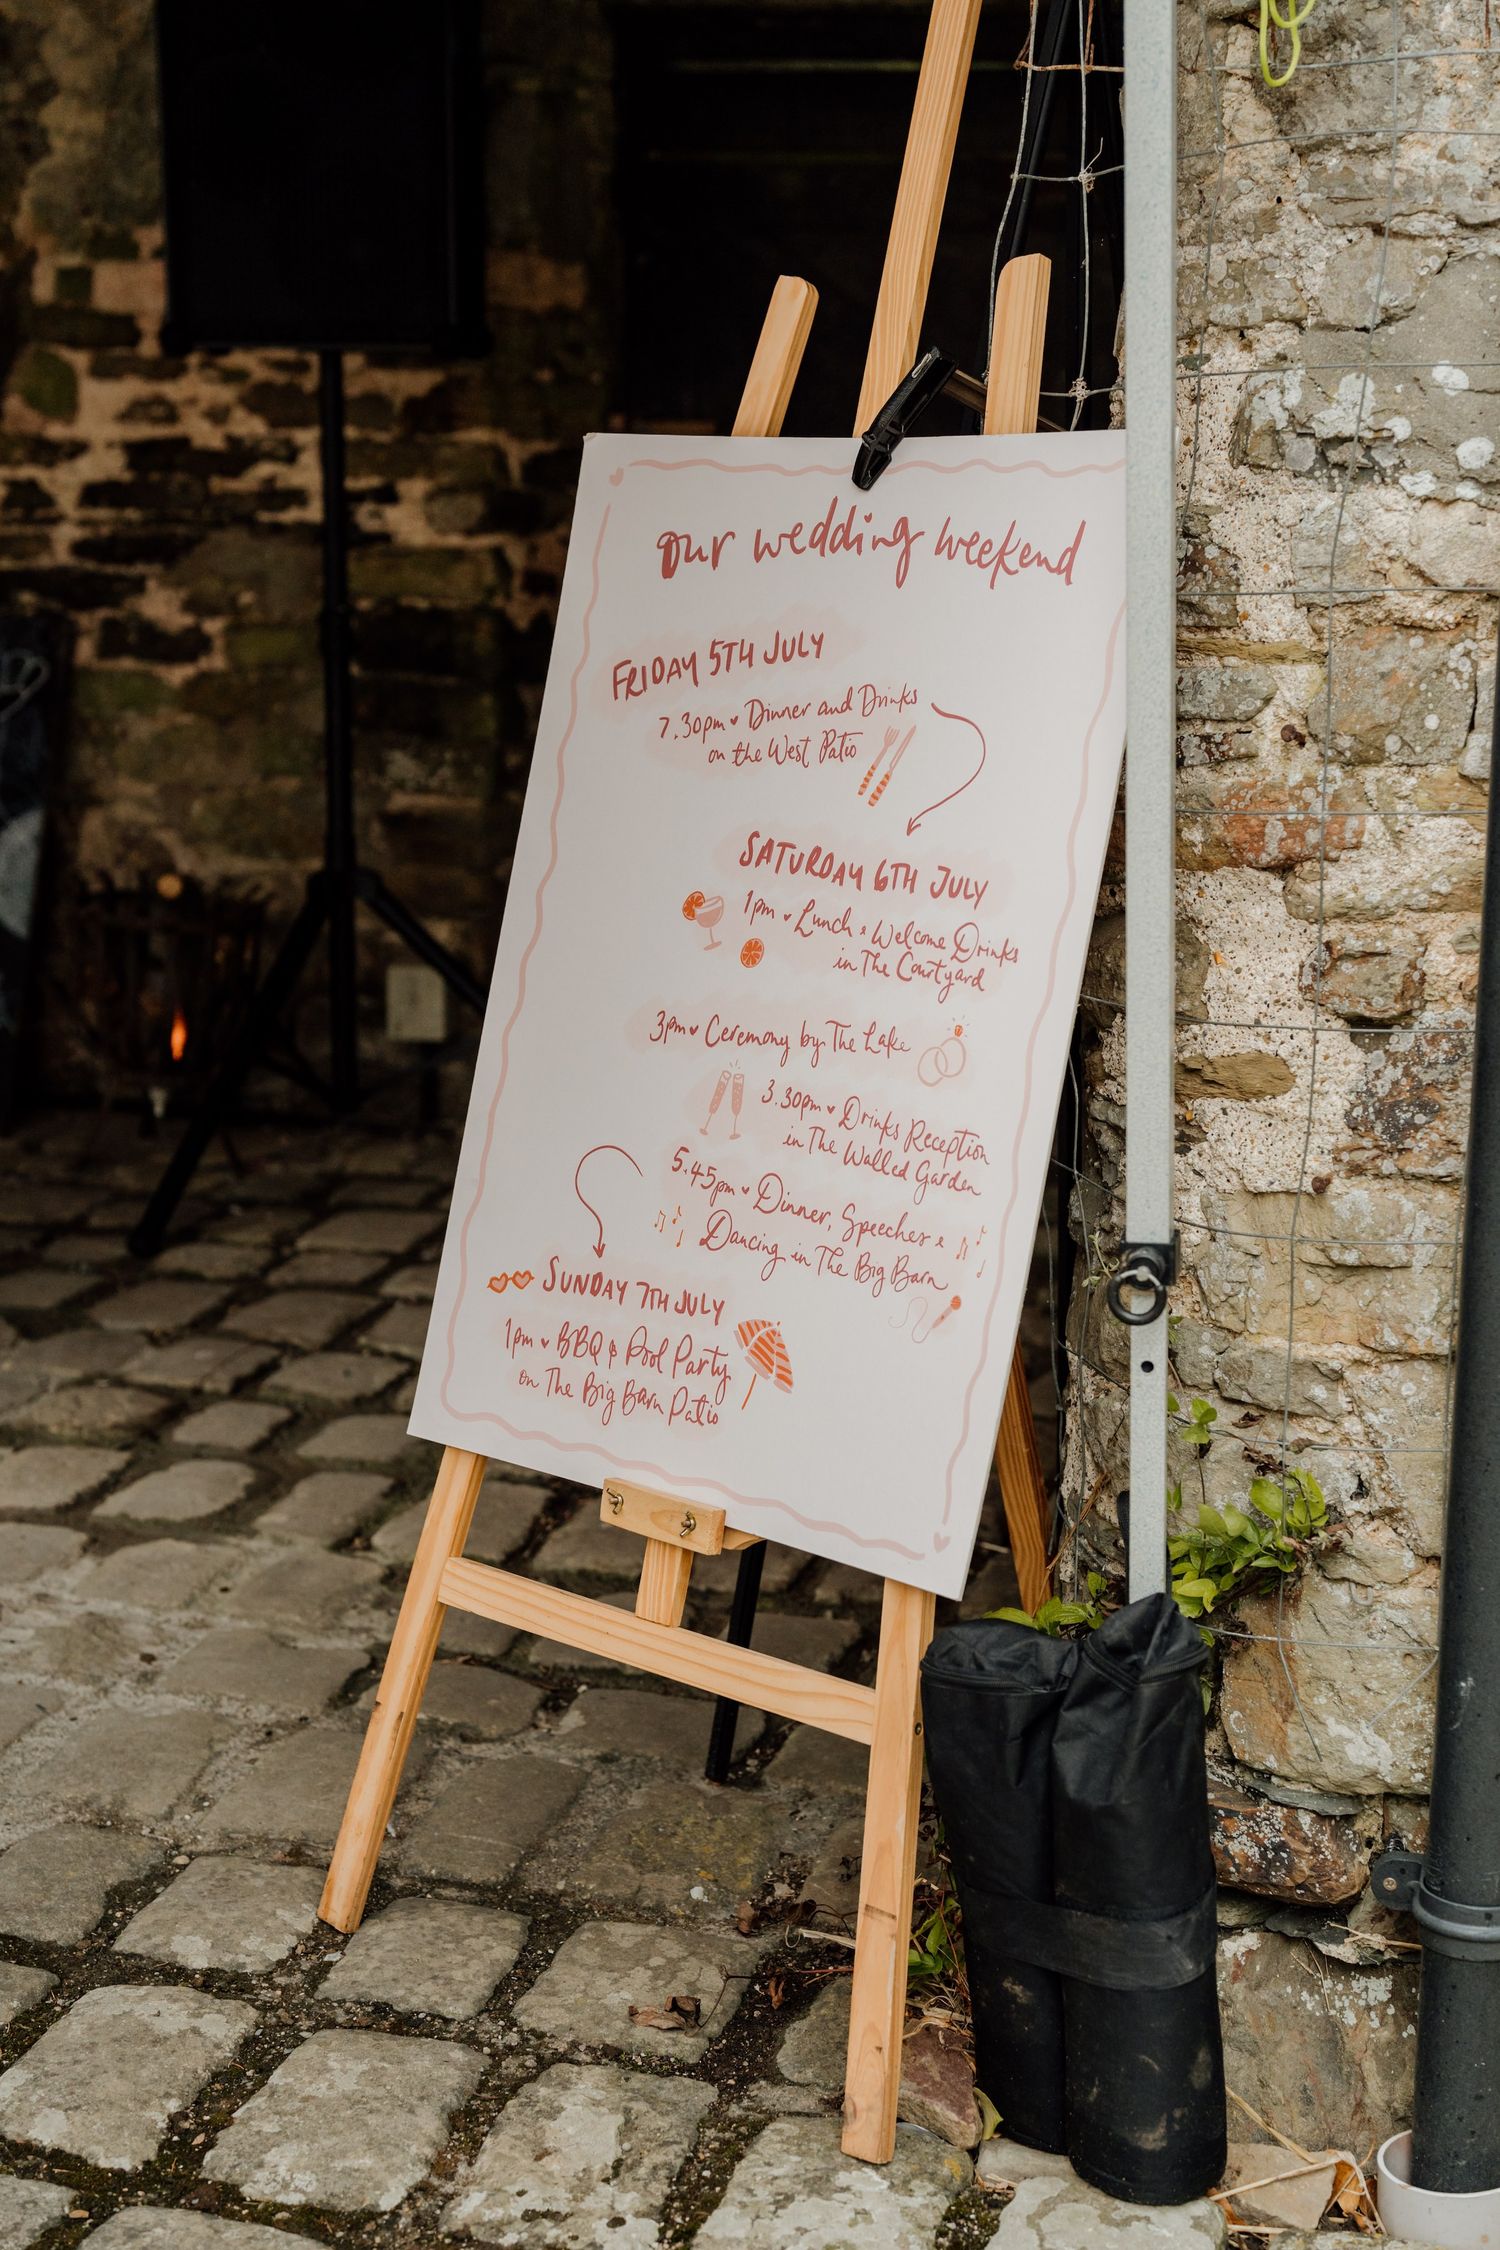 our wedding weekend
FRIDAY 5TH JULY
7.30pm ♥ Dinner and Drinks
on the West Patio
SATURDAY 6TH JULY
1pm ♥ Lunch & Welcome Drinks
in The Courtyard
3pm ♥ Ceremony by The Lake
3.30pm ♥ Drinks Reception
in The Walled Garden
5.45pm ♥ Dinner, Speeches &
Dancing in The Big Barn
SUNDAY 7TH JULY
1pm ♥ BBQ & Pool Party
on The Big Barn Patio